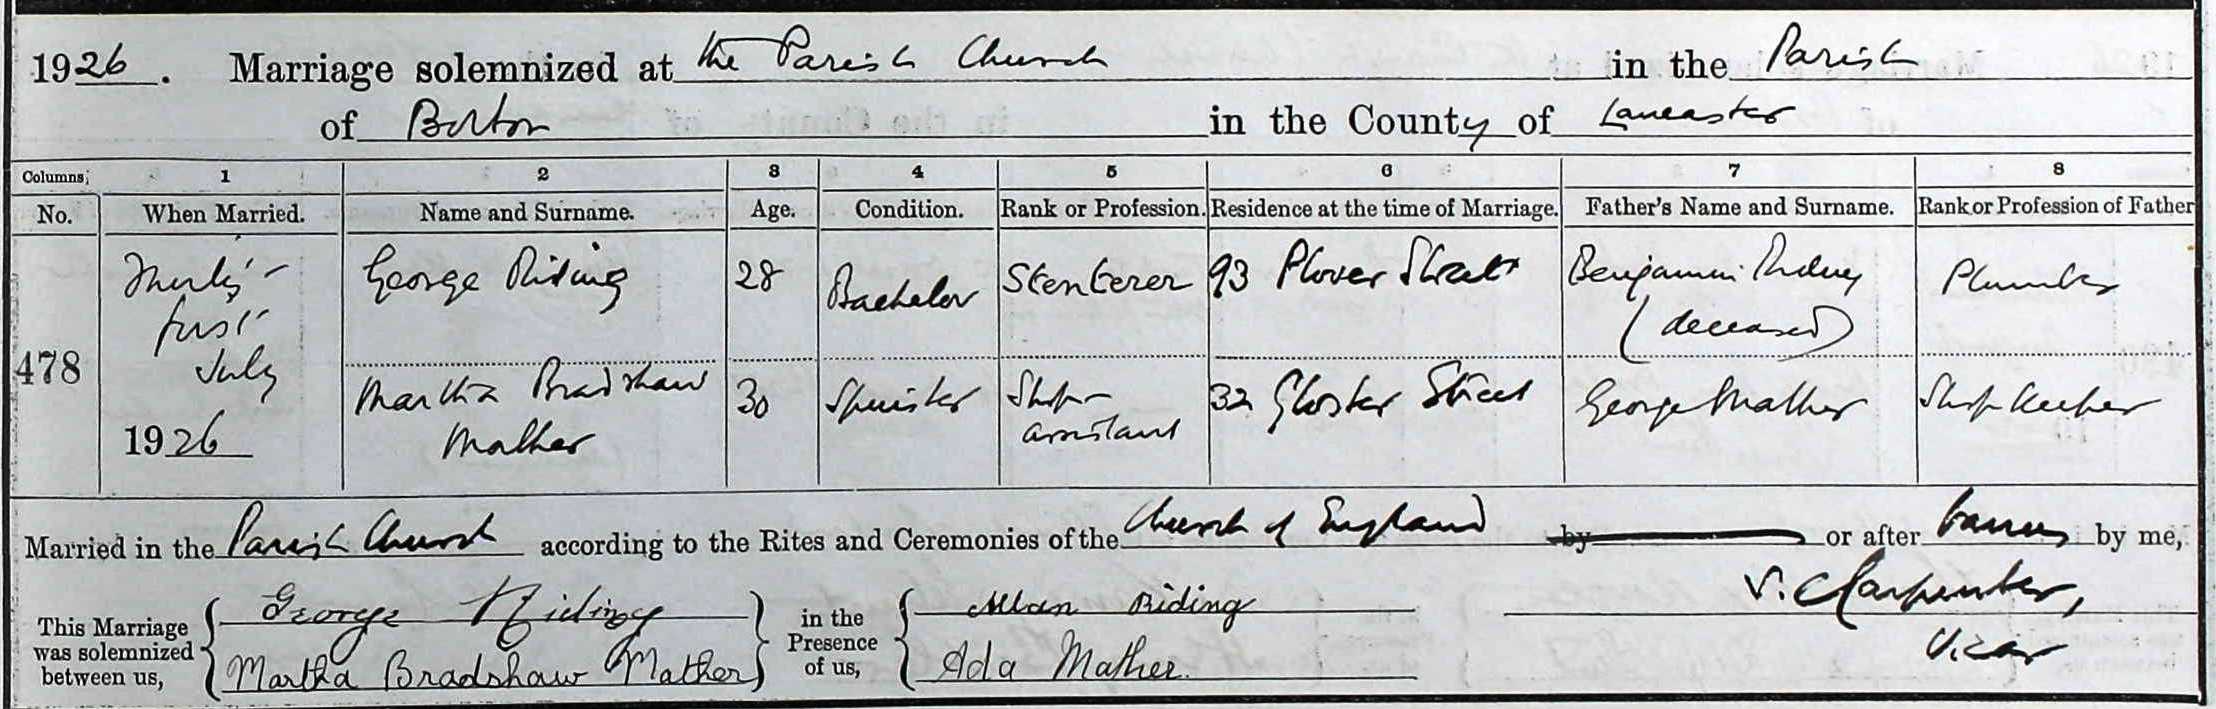 1926. Marriage solemnized at the Parish Church in the Parish
of Bolton in the County of Lancaster
Columns; 1 2 3 4 5 6 7 8
No. When Married. Name and Surname. Age. Condition. Rank or Profession. Residence at the time of Marriage. Father's Name and Surname. Rank or Profession of Father
478 Thirty-first July 1926 George Riding 28 Bachelor Stenterer 93 Plover Street Benjamin Riding (deceased) Plumber
Martha Bradshaw Mather 30 Spinster Shop-assistant 32 Gloster Street George Mather Shop keeper
Married in the Parish Church according to the Rites and Ceremonies of the Church of England by or after banns by me,
This Marriage was solemnized between us, George Riding in the Presence of us, Allan Riding V. Carpenter,
Martha Bradshaw Mather Ada Mather. Vicar